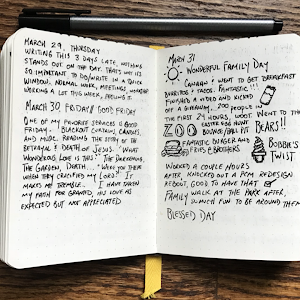 MARCH 29, THURSDAY
WRITING THIS 3 DAYS LATE, NOTHING
STANDS OUT ON THE DAY. THAT'S WHY IT'S
SO IMPORTANT TO DO/WRITE IN A QUICK
WINDOW. NORMAL WORK, MEETINGS, WORKSHOP
WORKING A LOT THIS WEEK, FEELING IT.
MARCH 30 FRIDAY/GOOD FRIDAY
ONE OF MY FAVORITE SERVICES IS GOOD
FRIDAY. BLACKOUT CURTAINS, CANDLES,
AND MUSIC. READING THE STORY OF THE
BETRAYAL & DEATH OF JESUS. "WHAT
WONDROUS LOVE IS THIS." THE DARKENING.
THE GARDEN, DEATH. "WERE YOU THERE
WHEN THEY CRUCIFIED MY LORD?" IT
MAKES ME TREMBLE. I HAVE TAKEN
MY FAITH FOR GRANTED, HIS LOVE AS
EXPECTED BUT NOT APPRECIATED
MARCH 31
WONDERFUL FAMILY DAY
& WENT TO GET BREAKFAST
BURRITOS & TACOS. FANTASTIC!!!
FINISHED A VIDEO AND KICKED
OFF A GIVEAWAY, 200 PEOPLE IN
THE FIRST 24 HOURS, WOOT WENT TO THE
ZOO
EASTER EGG HUNT
BOUNCE/BALL PIT
BEARS!!
FANTASTIC BURGER AND
FRIES @ BROTHERS
BOBBIE'S
TWIST
WORKED A COUPLE HOURS
AFTER, KNOCKED OUT A PCM REDESIGN
REBOOT, GOOD TO HAVE THAT
FAMILY WALK AT THE PARK AFTER,
MUCH FUN TO BE AROUND THEM
BLESSED DAY